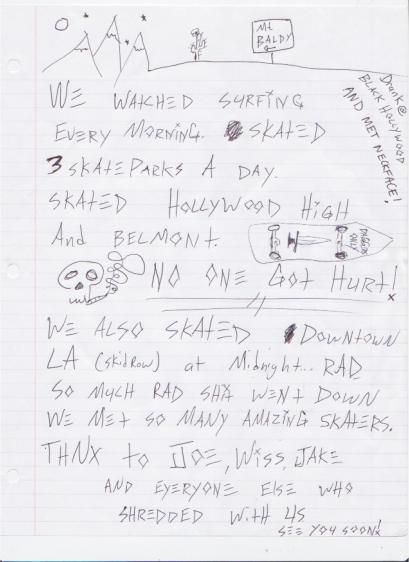 Mt
BALDY
Drank @
BLACK HOLLYWOOD
AND MET NECKFACE!
WE WATCHED SURFING
EVERY MORNING. SKATED
3 SKATEPARKS A DAY.
SKATED HOLLYWOOD HIGH
And BELMONT.
NO ONE GOT HURT!
WE ALSO SKATED DOWNTOWN
LA (SKidROW) at Midnight... RAD
SO MUCH RAD SHit WENT DOWN
WE MET SO MANY AMAZING SKATERS.
THNX to JOE, WiSS, JAKE
AND EVERYONE ELSE WHO
SHREDDED WitH US
SEE YOU SOON!